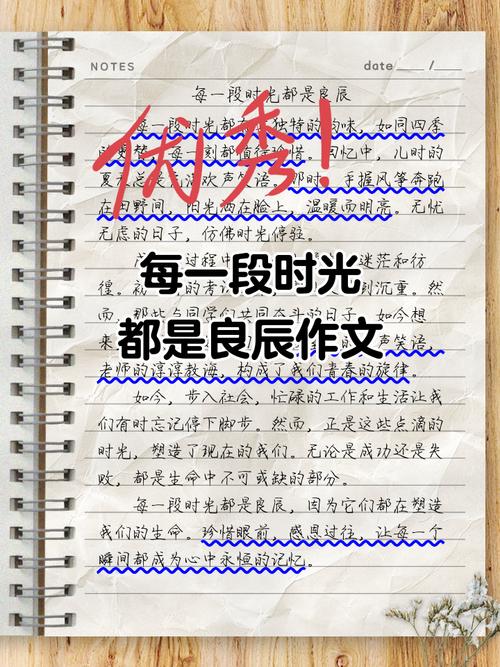 NOTES
date / 
每一段时光都是良辰
优秀!
每一段时光都有独特的韵味，如同四季
每一刻都值得珍惜。回忆中，儿时的
夏天总是充满欢声笑语。那时，手握风筝奔跑
在田野间，阳光洒在脸上，温暖而明亮。无忧
无虑的日子，仿佛时光停驻。
过程中 迷茫和彷
徨。 沉重。然
而，那些与同学们共同奋斗的日子，如今想
来 声笑语，
老师的谆谆教诲，构成了我们青春的旋律。
每一段时光
都是良辰作文
如今，步入社会，忙碌的工作和生活让我
们有时忘记停下脚步。然而，正是这些点滴的
时光，塑造了现在的我们。无论是成功还是失
败，都是生命中不可或缺的部分。
每一段时光都是良辰，因为它们都在塑造
我们的生命。珍惜眼前，感恩过往，让每一个
瞬间都成为心中永恒的记忆。